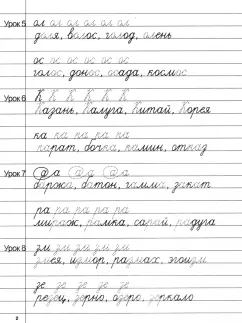 Урок 5 ол ол ол ол ол ол
доля, волос, голод, олень
ос ос ос ос ос ос
голос, донос, осада, космос
Урок 6 К К К К К К
Казань, Калуга, Китай, Корея
ка ка ка ка ка
карат, бочка, камин, отказ
Урок 7 а а а а
баржа, батон, гамма, закат
ра ра ра ра ра
мираж, рамка, сарай, радуга
Урок 8 зм зм зм зм зм
змея, измор, размах, эгоизм
зе зе зе зе зе
резец, зерно, озеро, зеркало
2